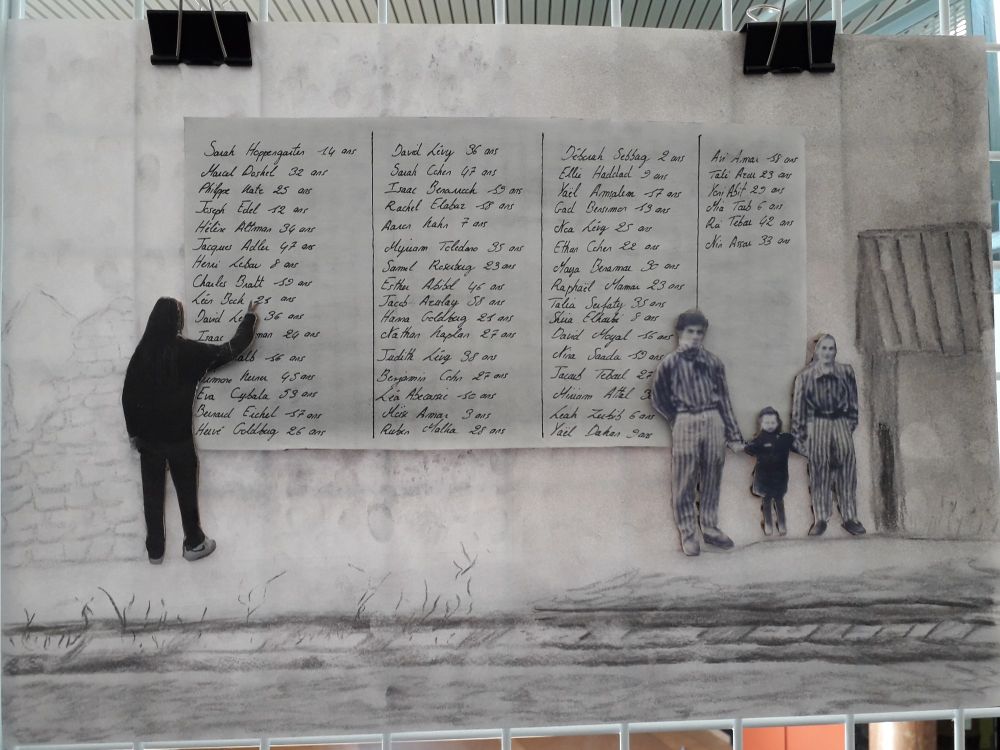 Sarah Hoppengarten 14 ans
Marcel Doshel 32 ans
Philippe Katz 25 ans
Joseph Edel 12 ans
Hélène Altman 34 ans
Jacques Adler 47 ans
Henri Lebar 8 ans
Charles Bratt 59 ans
Léon 25 ans
David 36 ans
Isaac 24 ans
56 ans
45 ans
Eva Cybala 53 ans
Bernard Eichel 57 ans
Hervé Goldberg 26 ans
David Lévy 36 ans
Sarah Cohen 47 ans
Isaac 59 ans
Rachel Elabaz 18 ans
Aaron Kahn 7 ans
Myriam Toledano 35 ans
Samuel Rosenberg 23 ans
Esther Abitbol 46 ans
Jacob Azoulay 58 ans
Hanna Goldberg 21 ans
Nathan Kaplan 27 ans
Judith Lévy 38 ans
Benjamin Cohn 27 ans
Léa Abecassis 50 ans
Moïse Amar 3 ans
Ruben Malka 28 ans
Déborah Sebbag 2 ans
Ellie Haddad 9 ans
Yaël Amsalem 17 ans
Gad Bensimon 13 ans
Noa Lévy 25 ans
Ethan Cohen 22 ans
Maya Benamar 30 ans
Raphaël Maman 23 ans
Talia Serfaty 38 ans
Shira 8 ans
David Moyal 16 ans
Nina Saada 59 ans
Tebaul 27
Miriam Attal
Leah Zerbib 6 ans
Yaël Dahan 9 ans
Avi Amar 18 ans
Tali Azur 23 ans
Yoni Abit 29 ans
Mia Taib 6 ans
Tebar 42 ans
33 ans